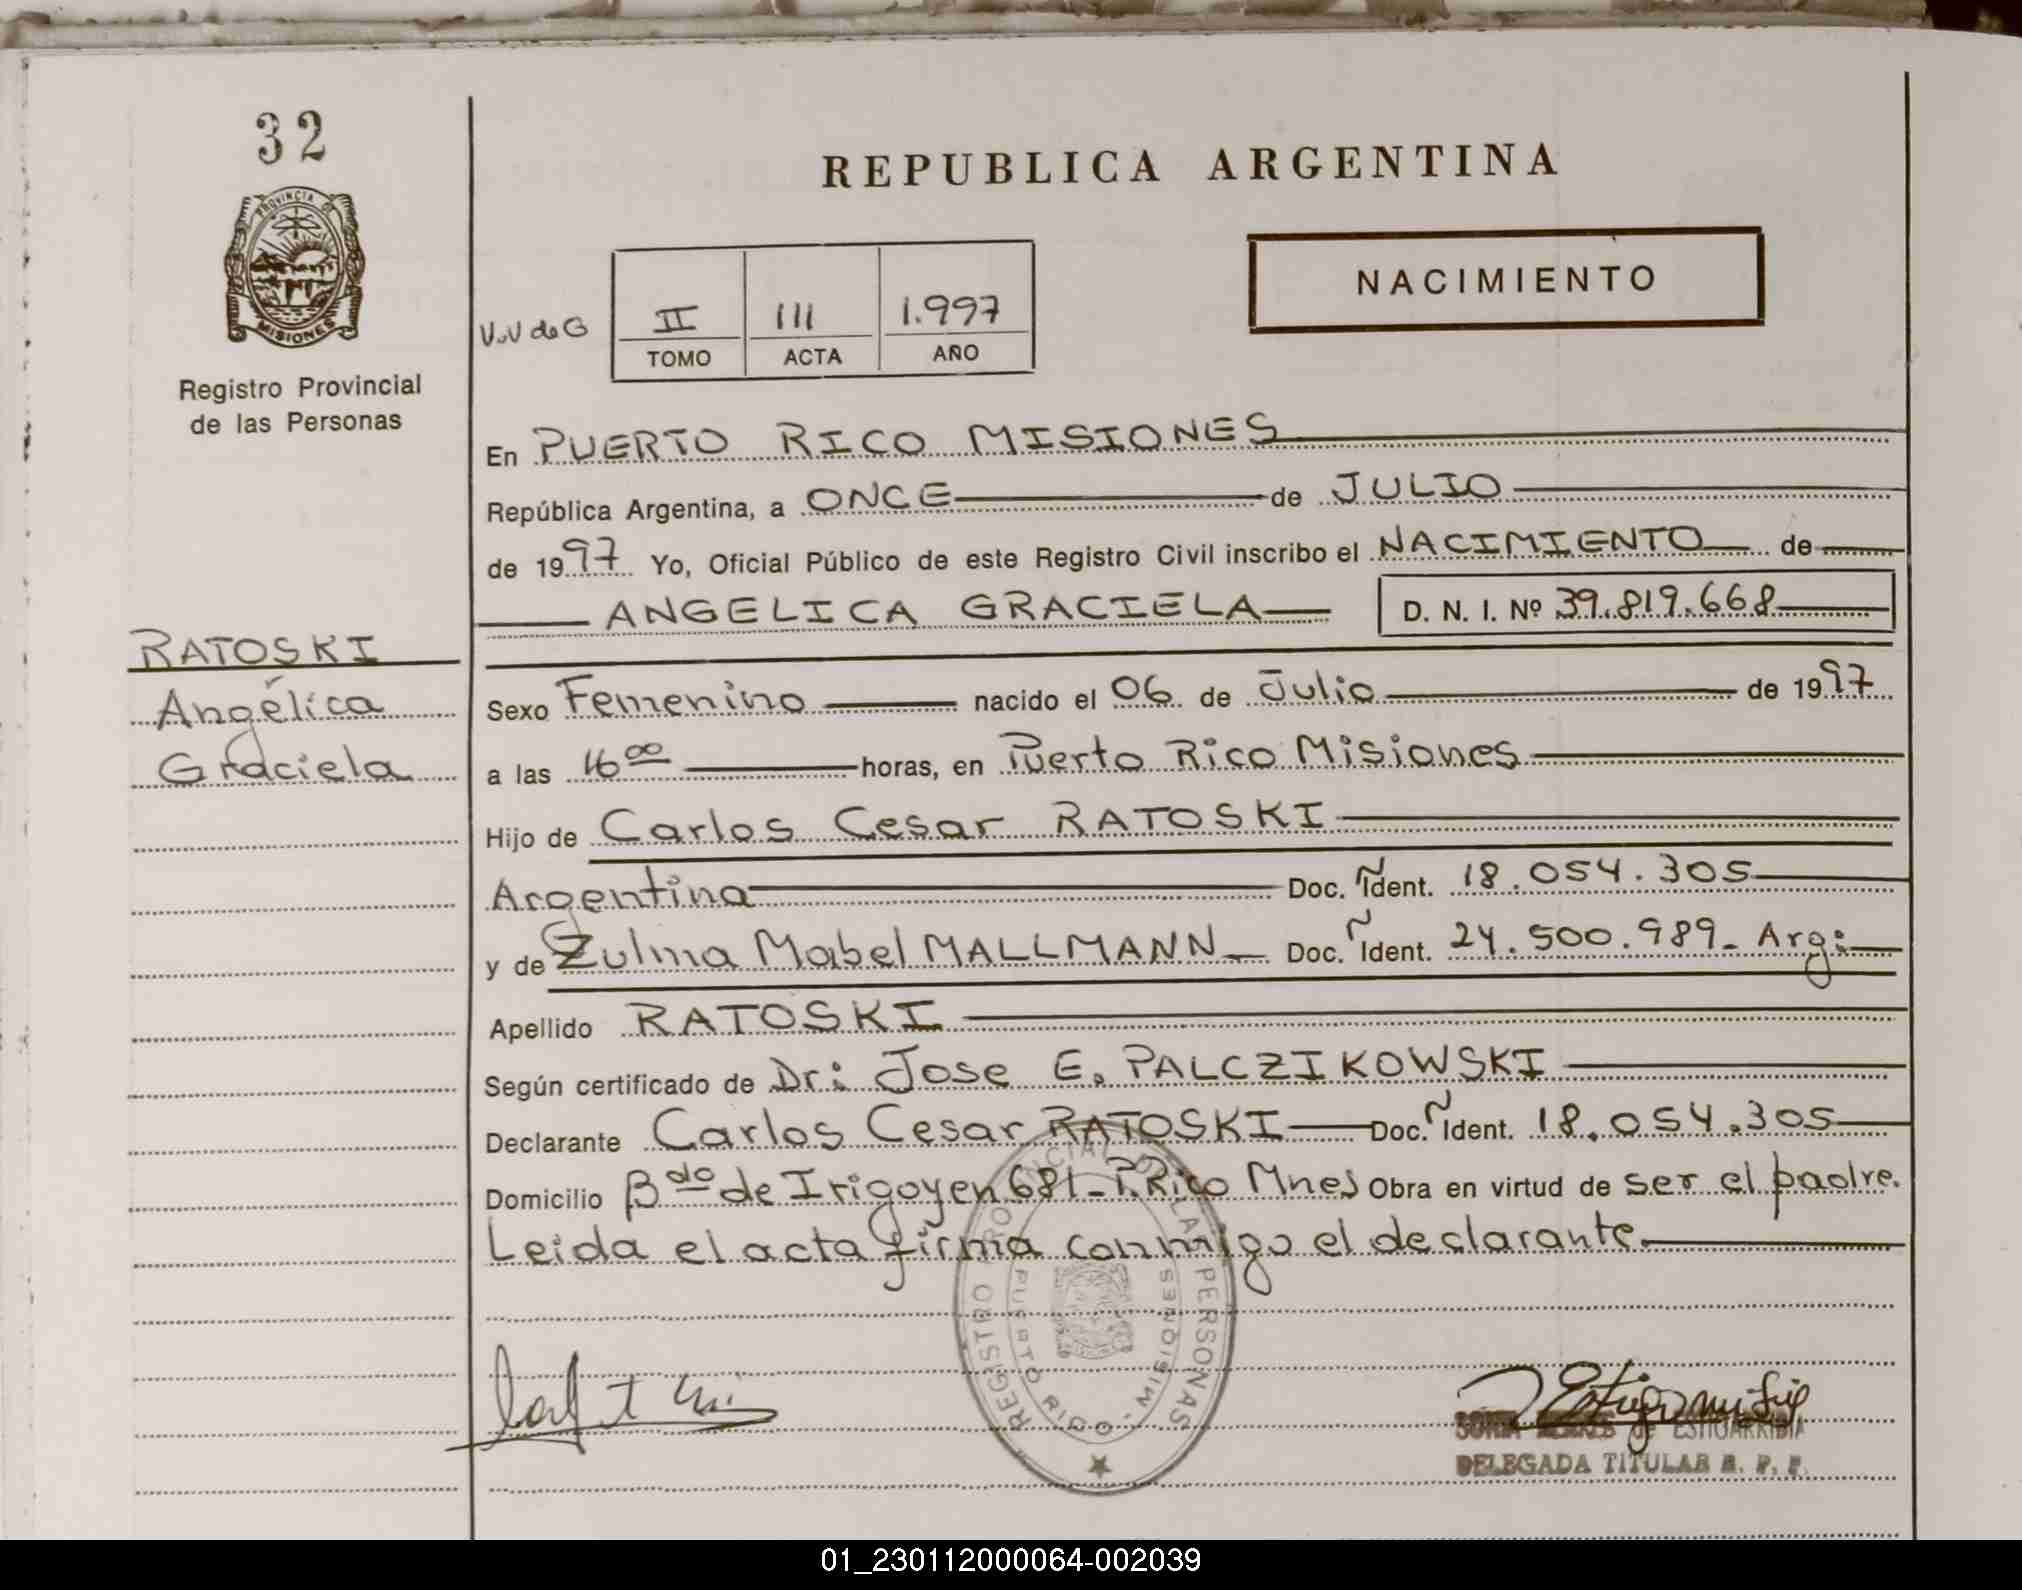 32
PROVINCIA DE
MISIONES
Registro Provincial
de las Personas
REPUBLICA ARGENTINA
NACIMIENTO
V.V de G
II 111 1.997
TOMO ACTA AÑO
En PUERTO RICO MISIONES
República Argentina, a ONCE de JULIO
de 1997 Yo, Oficial Público de este Registro Civil inscribo el NACIMIENTO de
ANGELICA GRACIELA D. N. I. Nº 39.819.668
RATOSKI
Angélica
Graciela
Sexo Femenino nacido el 06 de Julio de 1997
a las 16 00 horas, en Puerto Rico Misiones
Hijo de Carlos Cesar RATOSKI
Argentina Doc. Ident. 18.054.305
y de Zulma Mabel MALLMANN Doc. Ident. 24.500.989- Arg:
Apellido RATOSKI
Según certificado de Dr: Jose E. PALCZIKOWSKI
Declarante Carlos Cesar RATOSKI Doc. Ident. 18.054.305
Domicilio Bdo de Irigoyen 681-P.Rico Mnes Obra en virtud de ser el padre.
Leida el acta firma conmigo el declarante.
REGISTRO PROVINCIAL DE LAS PERSONAS
PUERTO RICO - MISIONES
de ESTIGARRIBIA
DELEGADA TITULAR R. P. P.
01_230112000064-002039